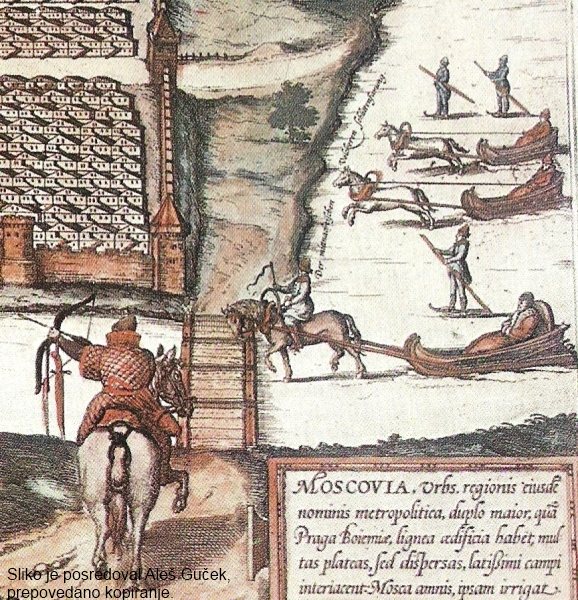 MOSCOVIA. Vrbs. regionis eiusdē
nominis metropolitica, duplo maior, quā
Praga Boiemiæ, lignea ædificia habēt, mul
tas plateas, sed dispersas, latissimi campi
interiacent. Mosca amnis, ipsam irrigat.
Sliko je posredoval Aleš Guček,
prepovedano kopiranje.